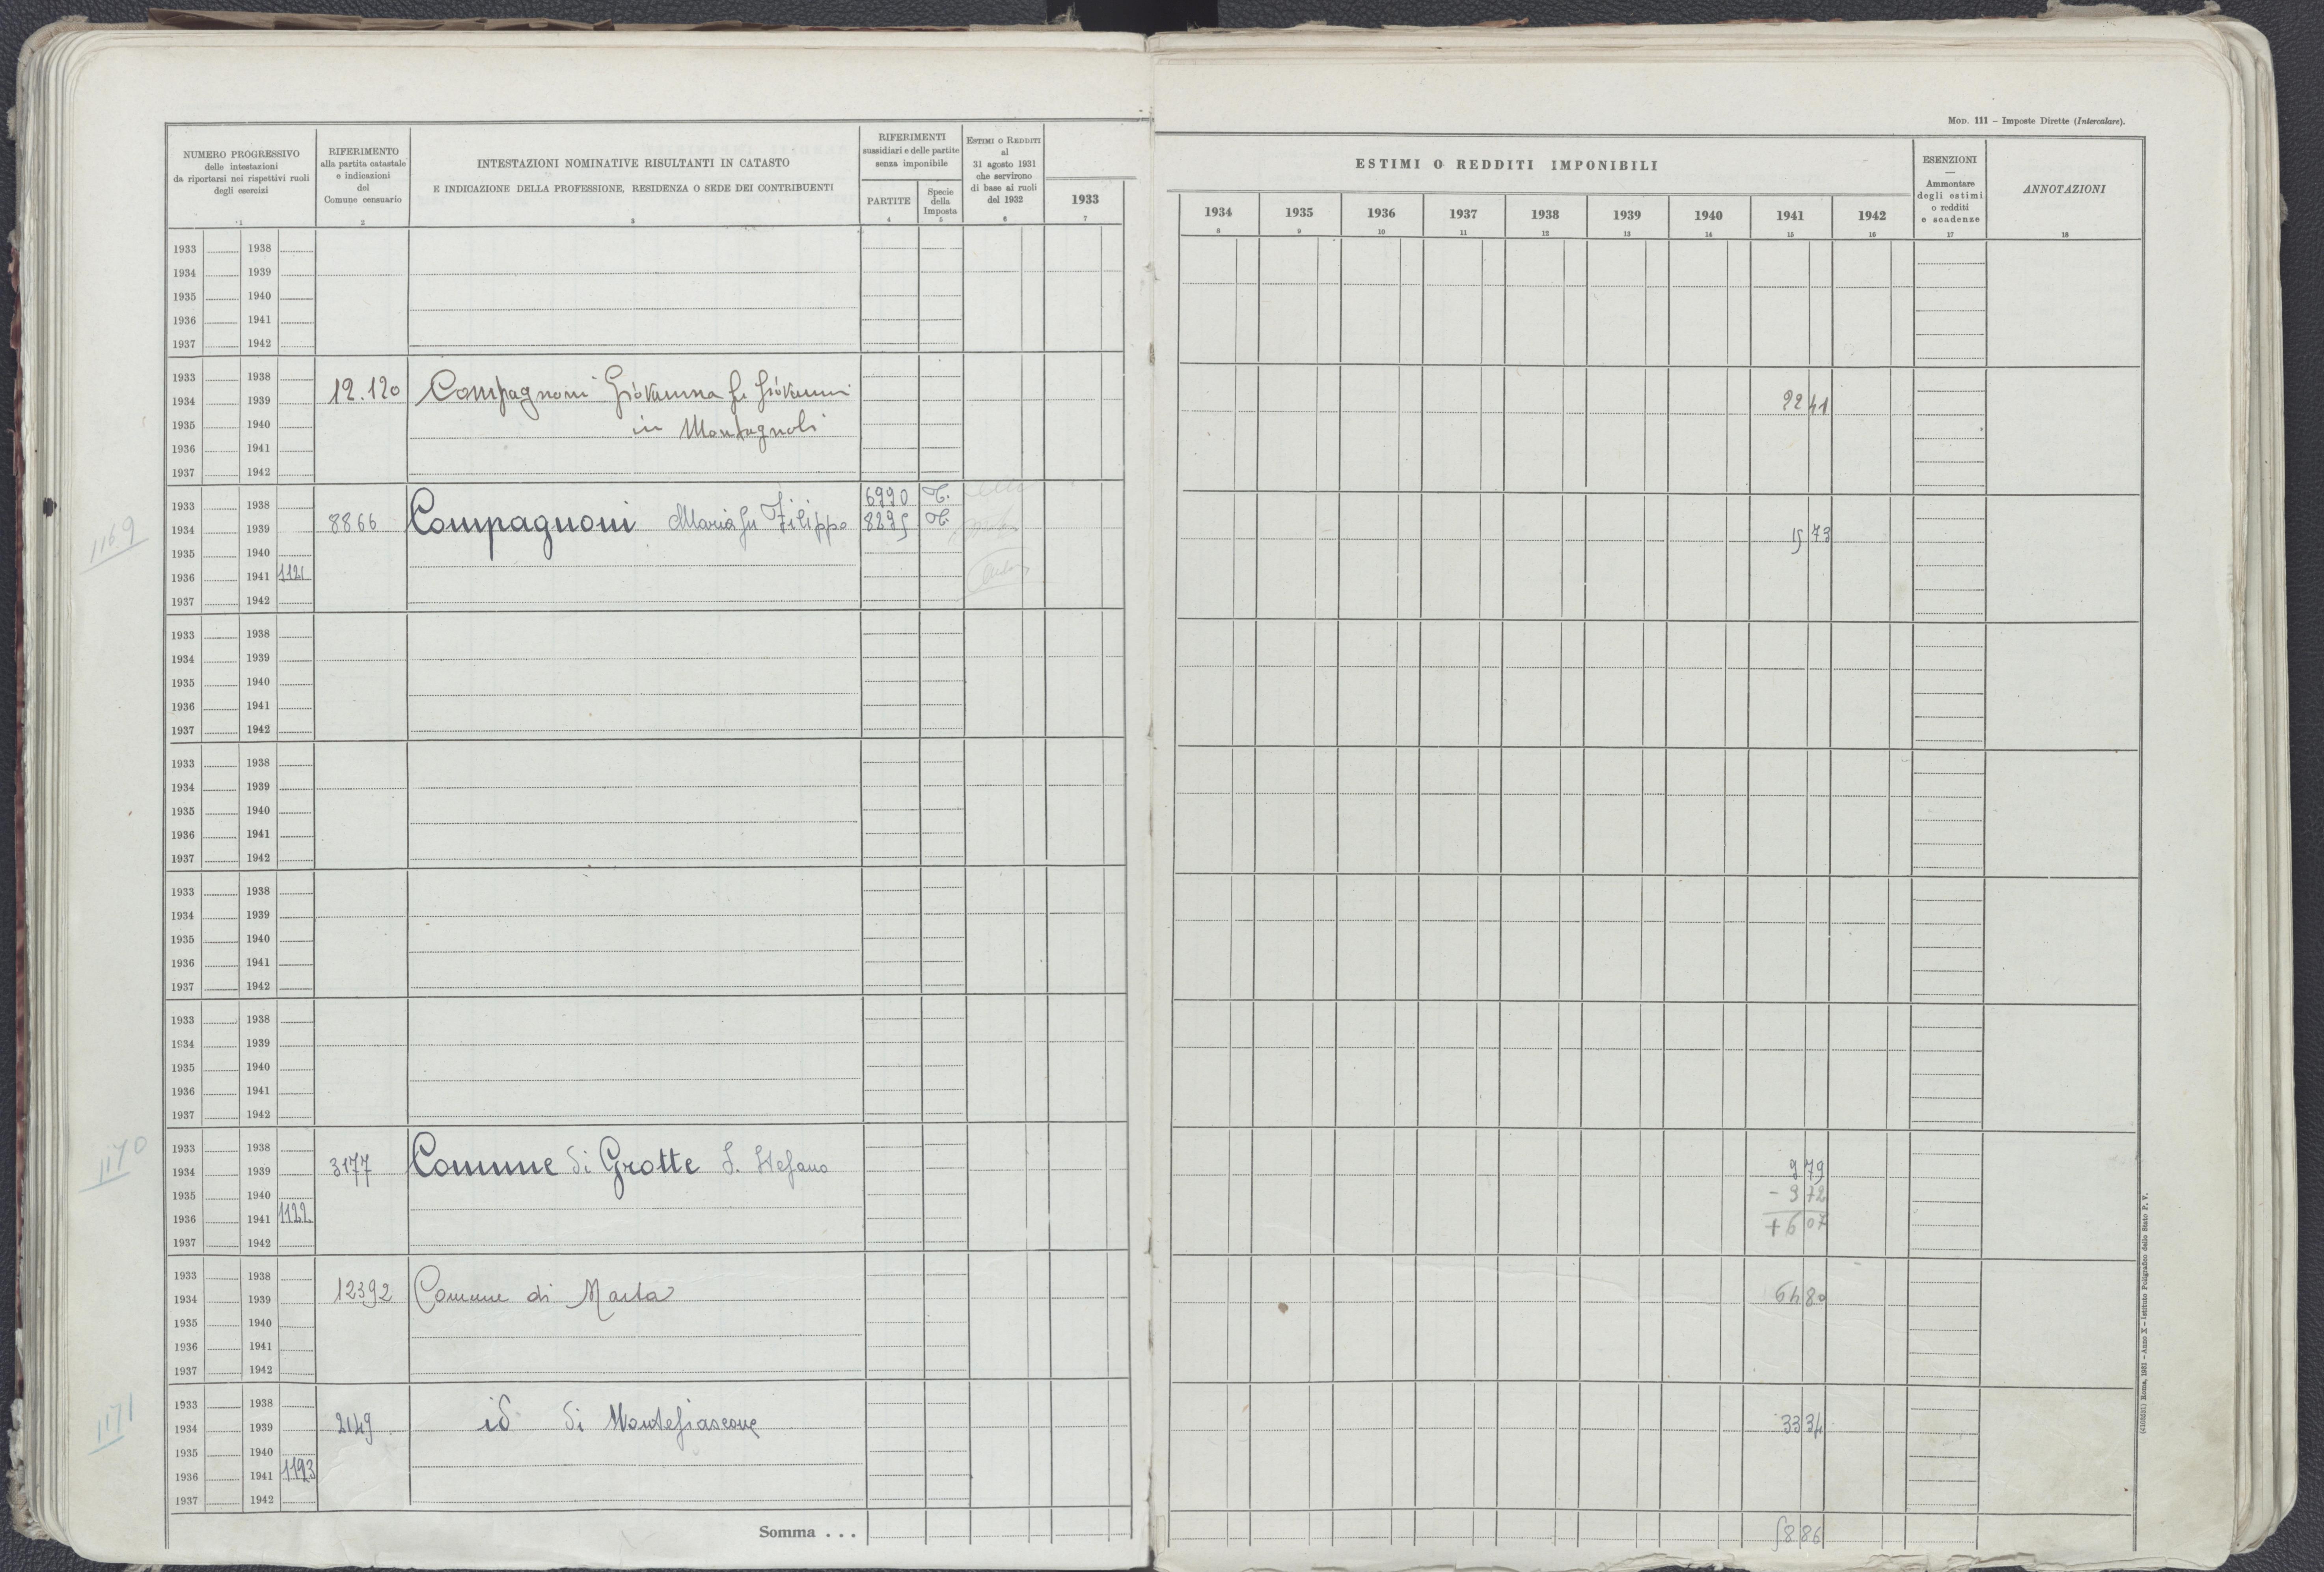 Mod. 111 – Imposte Dirette (Intercalare).
NUMERO PROGRESSIVO
delle intestazioni
da riportarsi nei rispettivi ruoli
degli esercizi
1
RIFERIMENTO
alla partita catastale
e indicazioni
del
Comune censuario
2
INTESTAZIONI NOMINATIVE RISULTANTI IN CATASTO
E INDICAZIONE DELLA PROFESSIONE, RESIDENZA O SEDE DEI CONTRIBUENTI
3
RIFERIMENTI
sussidiari e delle partite
senza imponibile
PARTITE
4
Specie
della
Imposta
5
Estimi o Redditi
al
31 agosto 1931
che servirono
di base ai ruoli
del 1932
6
1933
7
ESTIMI O REDDITI IMPONIBILI
1934 1935 1936 1937 1938 1939 1940 1941 1942
8 9 10 11 12 13 14 15 16
ESENZIONI
—
Ammontare
degli estimi
o redditi
e scadenze
17
ANNOTAZIONI
18
1933 1938
1934 1939
1935 1940
1936 1941
1937 1942
1933 1938
1934 1939 12.120 Compagnoni Giovanna fu Giovanni 22 41
1935 1940 in Montagnoli
1936 1941
1937 1942
1933 1938 6990
1169 1934 1939 8866 Compagnoni Maria fu Filippo 8295 15 73
1935 1940
1936 1941 1121
1937 1942
1933 1938
1934 1939
1935 1940
1936 1941
1937 1942
1933 1938
1934 1939
1935 1940
1936 1941
1937 1942
1933 1938
1934 1939
1935 1940
1936 1941
1937 1942
1933 1938
1934 1939
1935 1940
1936 1941
1937 1942
1170 1933 1938
1934 1939 3177 Comune di Grotte S. Stefano 9 79
1935 1940 - 3 72
1936 1941 1122 + 6 07
1937 1942
1933 1938
1934 1939 12392 Comune di Marta 64 80
1935 1940
1936 1941
1937 1942
1171 1933 1938
1934 1939 2149 id di Montefiascone 33 34
1935 1940
1936 1941 1123
1937 1942
Somma . . . 58 86
(4103251) Roma, 1931 – Anno X – Istituto Poligrafico dello Stato P. V.